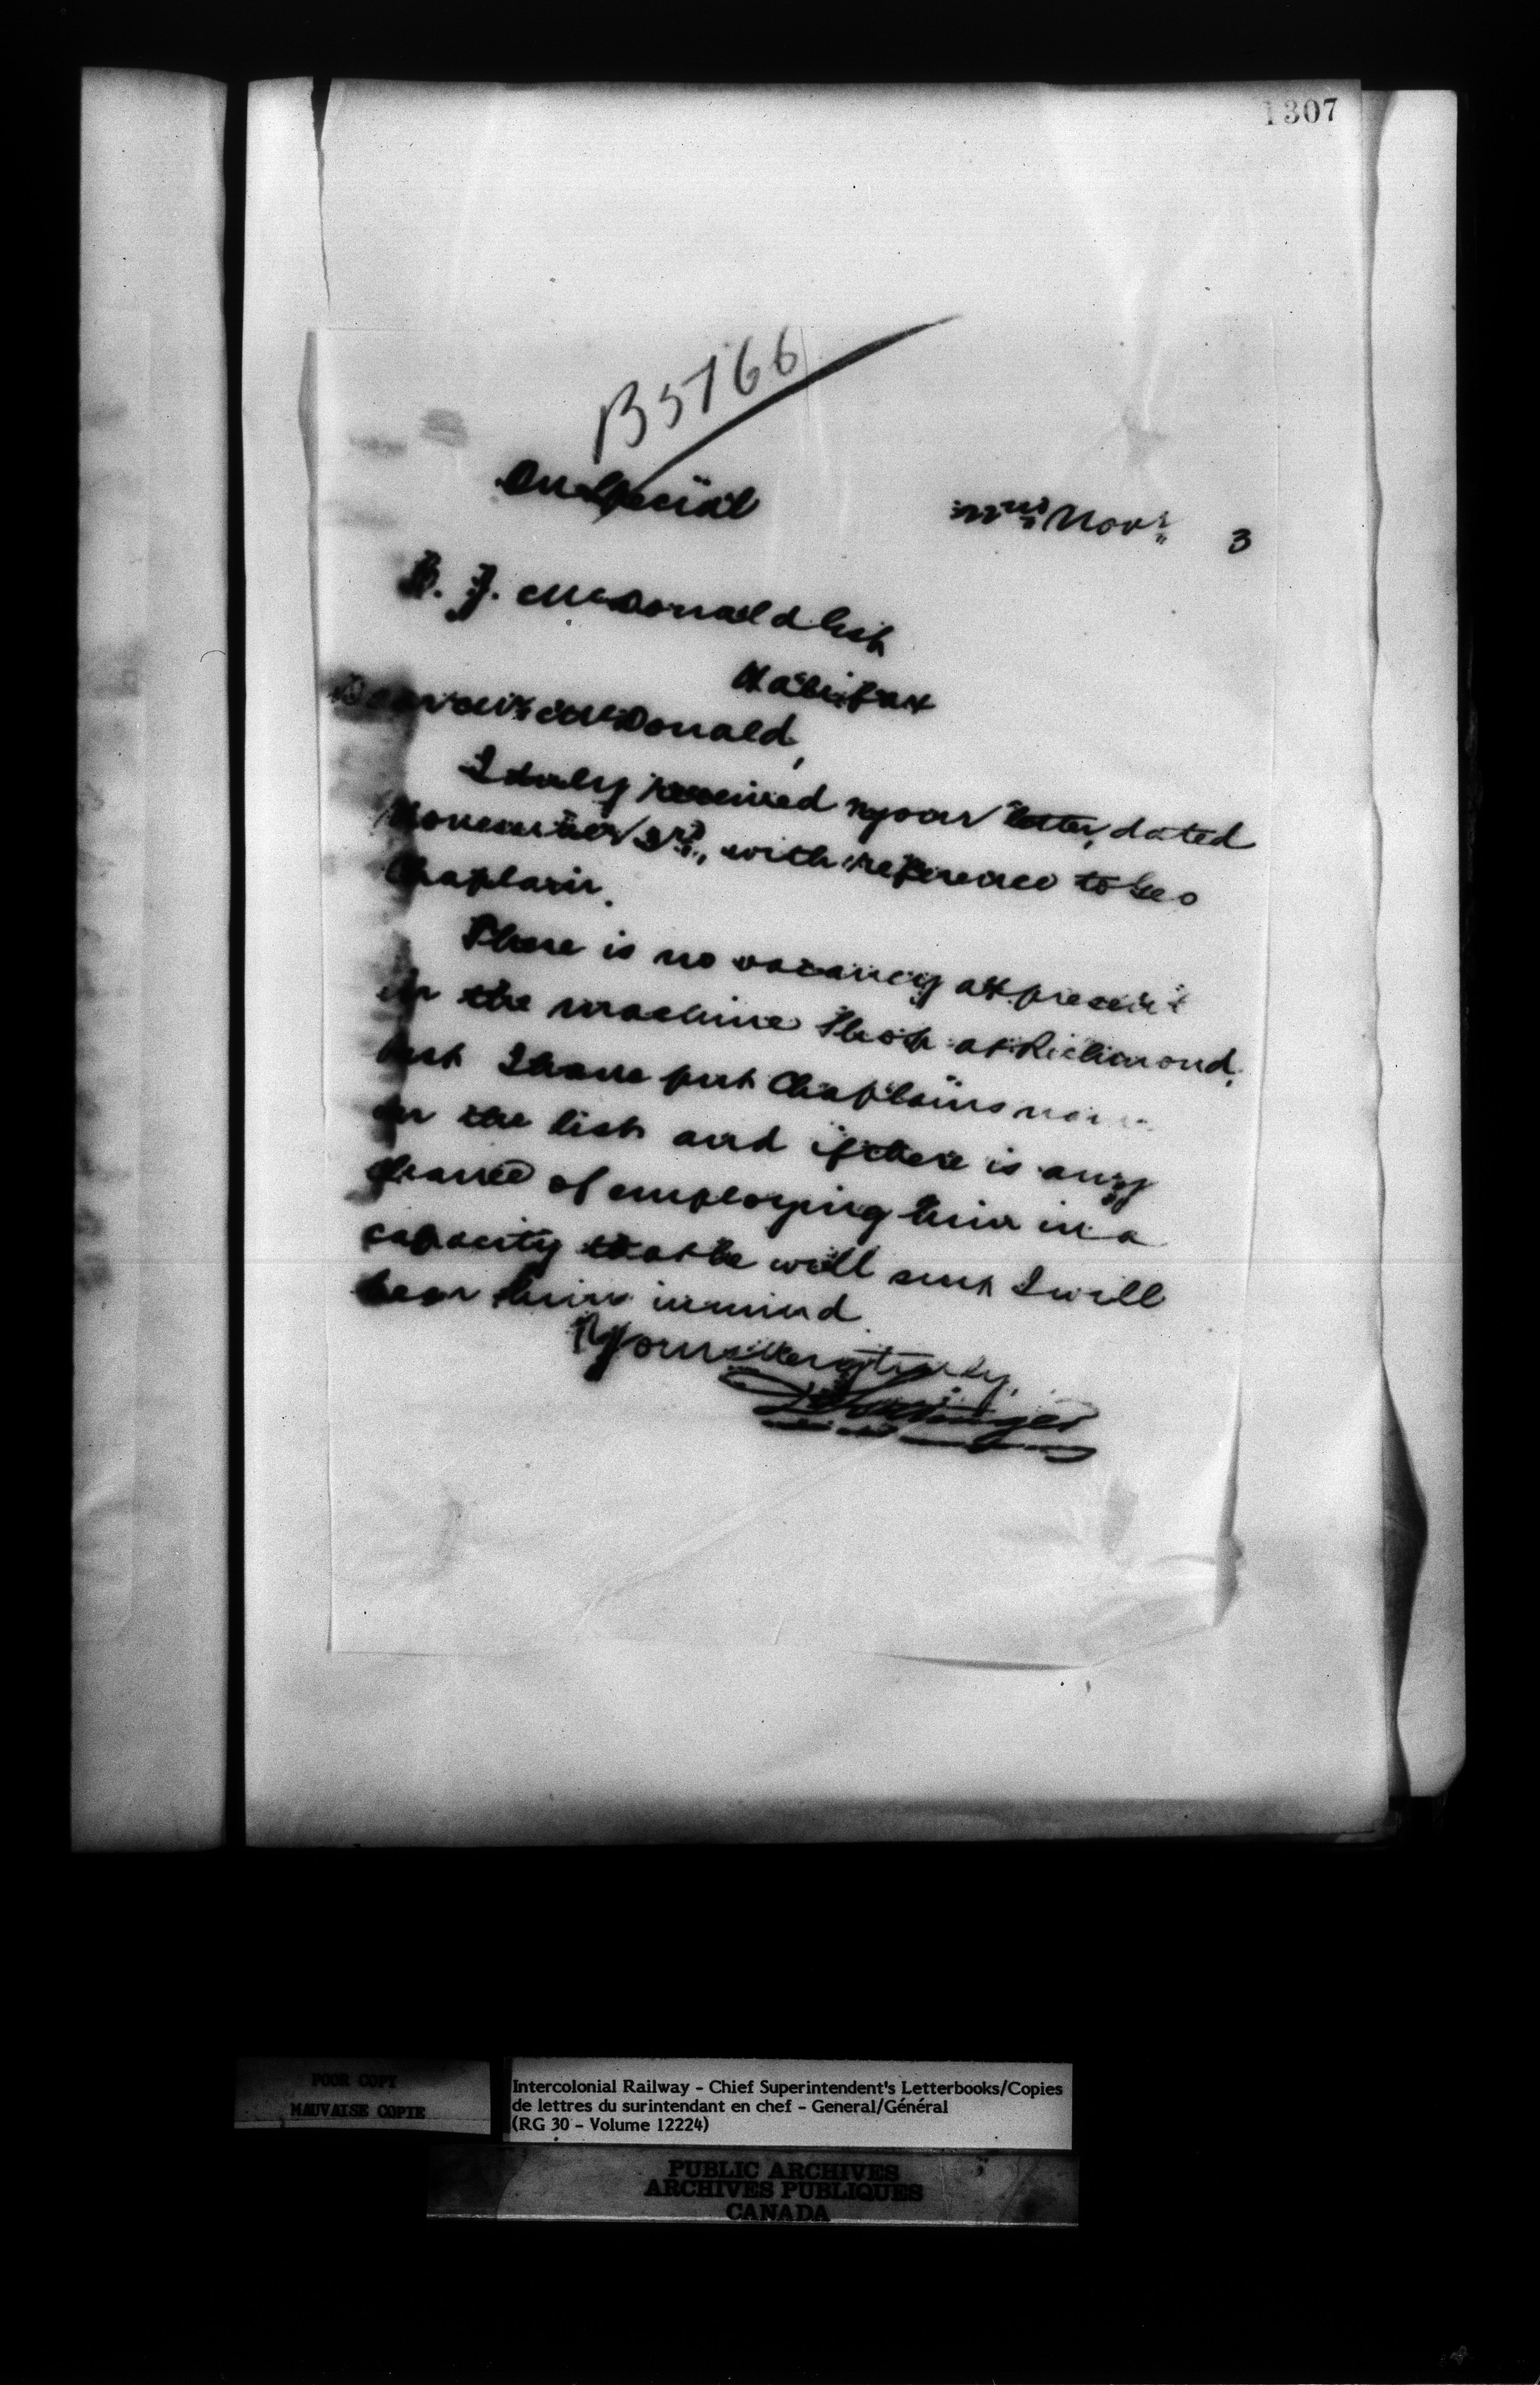 1307
B5766
On Special
22nd Novr. 3
B. J. McDonald Esq
Halifax
Dear Mr. McDonald,
I duly received your letter, dated
November 3rd, with reference to Geo
Chaplain.
There is no vacancy at present
in the machine Shop at Richmond,
but I have put Chaplains name
on the list and if there is any
chance of employing him in a
capacity that he will suit I will
bear him in mind.
Yours very truly,
Pottinger
POOR COPY
MAUVAISE COPIE
Intercolonial Railway - Chief Superintendent's Letterbooks/Copies
de lettres du surintendant en chef - General/Général
(RG 30 - Volume 12224)
PUBLIC ARCHIVES
ARCHIVES PUBLIQUES
CANADA